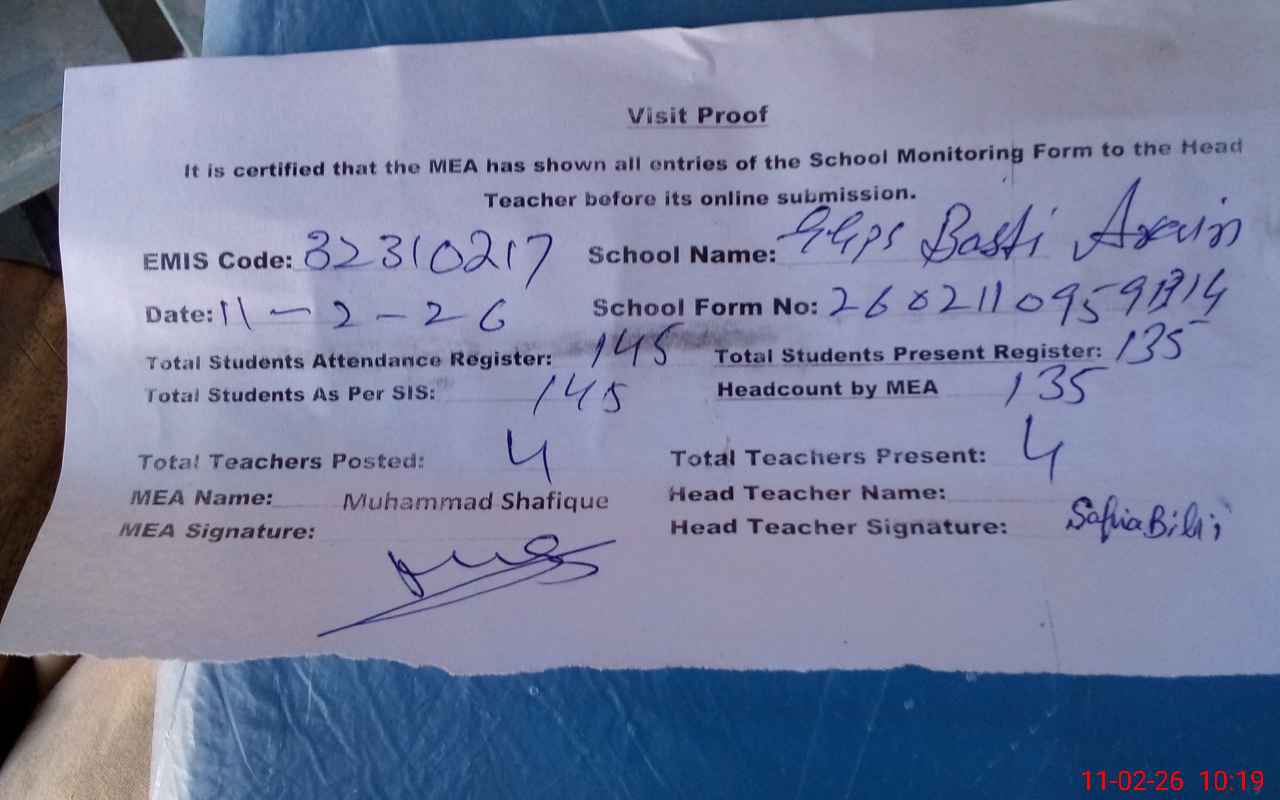 Visit Proof
It is certified that the MEA has shown all entries of the School Monitoring Form to the Head
Teacher before its online submission.
EMIS Code: 32310217 School Name: GGPS Basti Arain
Date: 11-2-26 School Form No:
Total Students Attendance Register: 145 Total Students Present Register: 135
Total Students As Per SIS: 145 Headcount by MEA 135
Total Teachers Posted: 4 Total Teachers Present: 4
MEA Name: Muhammad Shafique Head Teacher Name:
MEA Signature: Head Teacher Signature: Safia Bibi
11-02-26 10:19